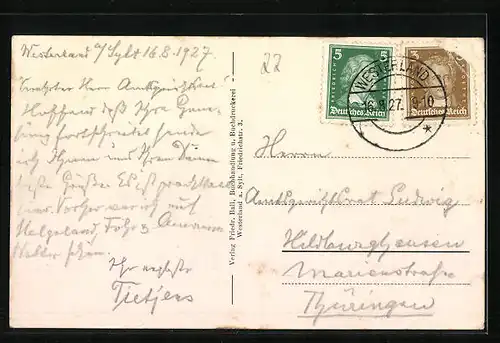 Westerland a/Sylt 16.8.1927.
Verehrter Herr Amtsgerichtsrat
Hoffend daß Ihre Gene-
sung fortschreitet sende
ich Ihnen und Ihren Damen
beste Grüße. Es ist prachtvoll
hier. Vorher war ich auf
Helgoland, Föhr
Ihr
Tietjens
22
Verlag Friedr. Ball, Buchhandlung u. Buchdruckerei
Westerland a. Sylt, Friedrichstr. 3.
5 5
FRIEDRICH SCHILLER
Deutsches Reich
3
GOETHE
Deutsches Reich
WESTERLAND
16.8.27. 9-10
*
Herrn
Amtsgerichtsrat Ludwig
Hildburghausen
Marienstraße
Thüringen